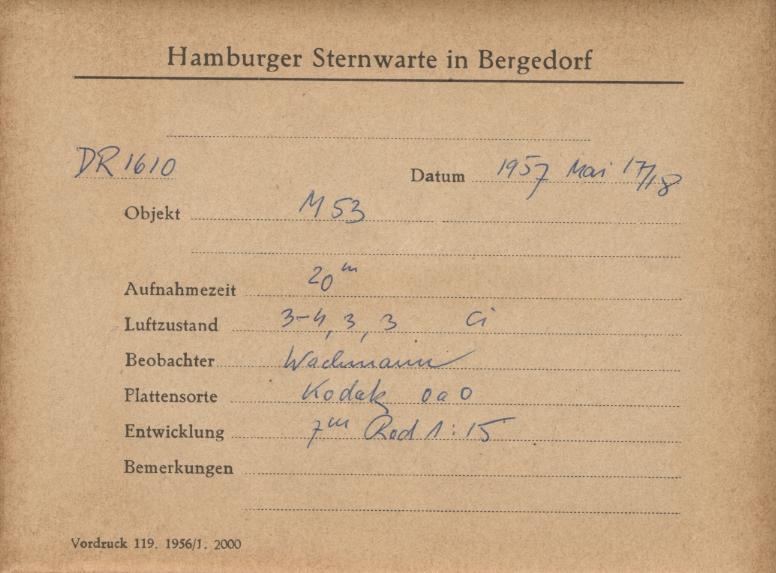 Hamburger Sternwarte in Bergedorf
DR 1610 Datum 1957 Mai 17/18
Objekt M 53
Aufnahmezeit 20ᵐ
Luftzustand 3-4, 3, 3 Ci
Beobachter Wachmann
Plattensorte Kodak 0a0
Entwicklung 7ᵐ Rod 1:15
Bemerkungen
Vordruck 119. 1956/1. 2000